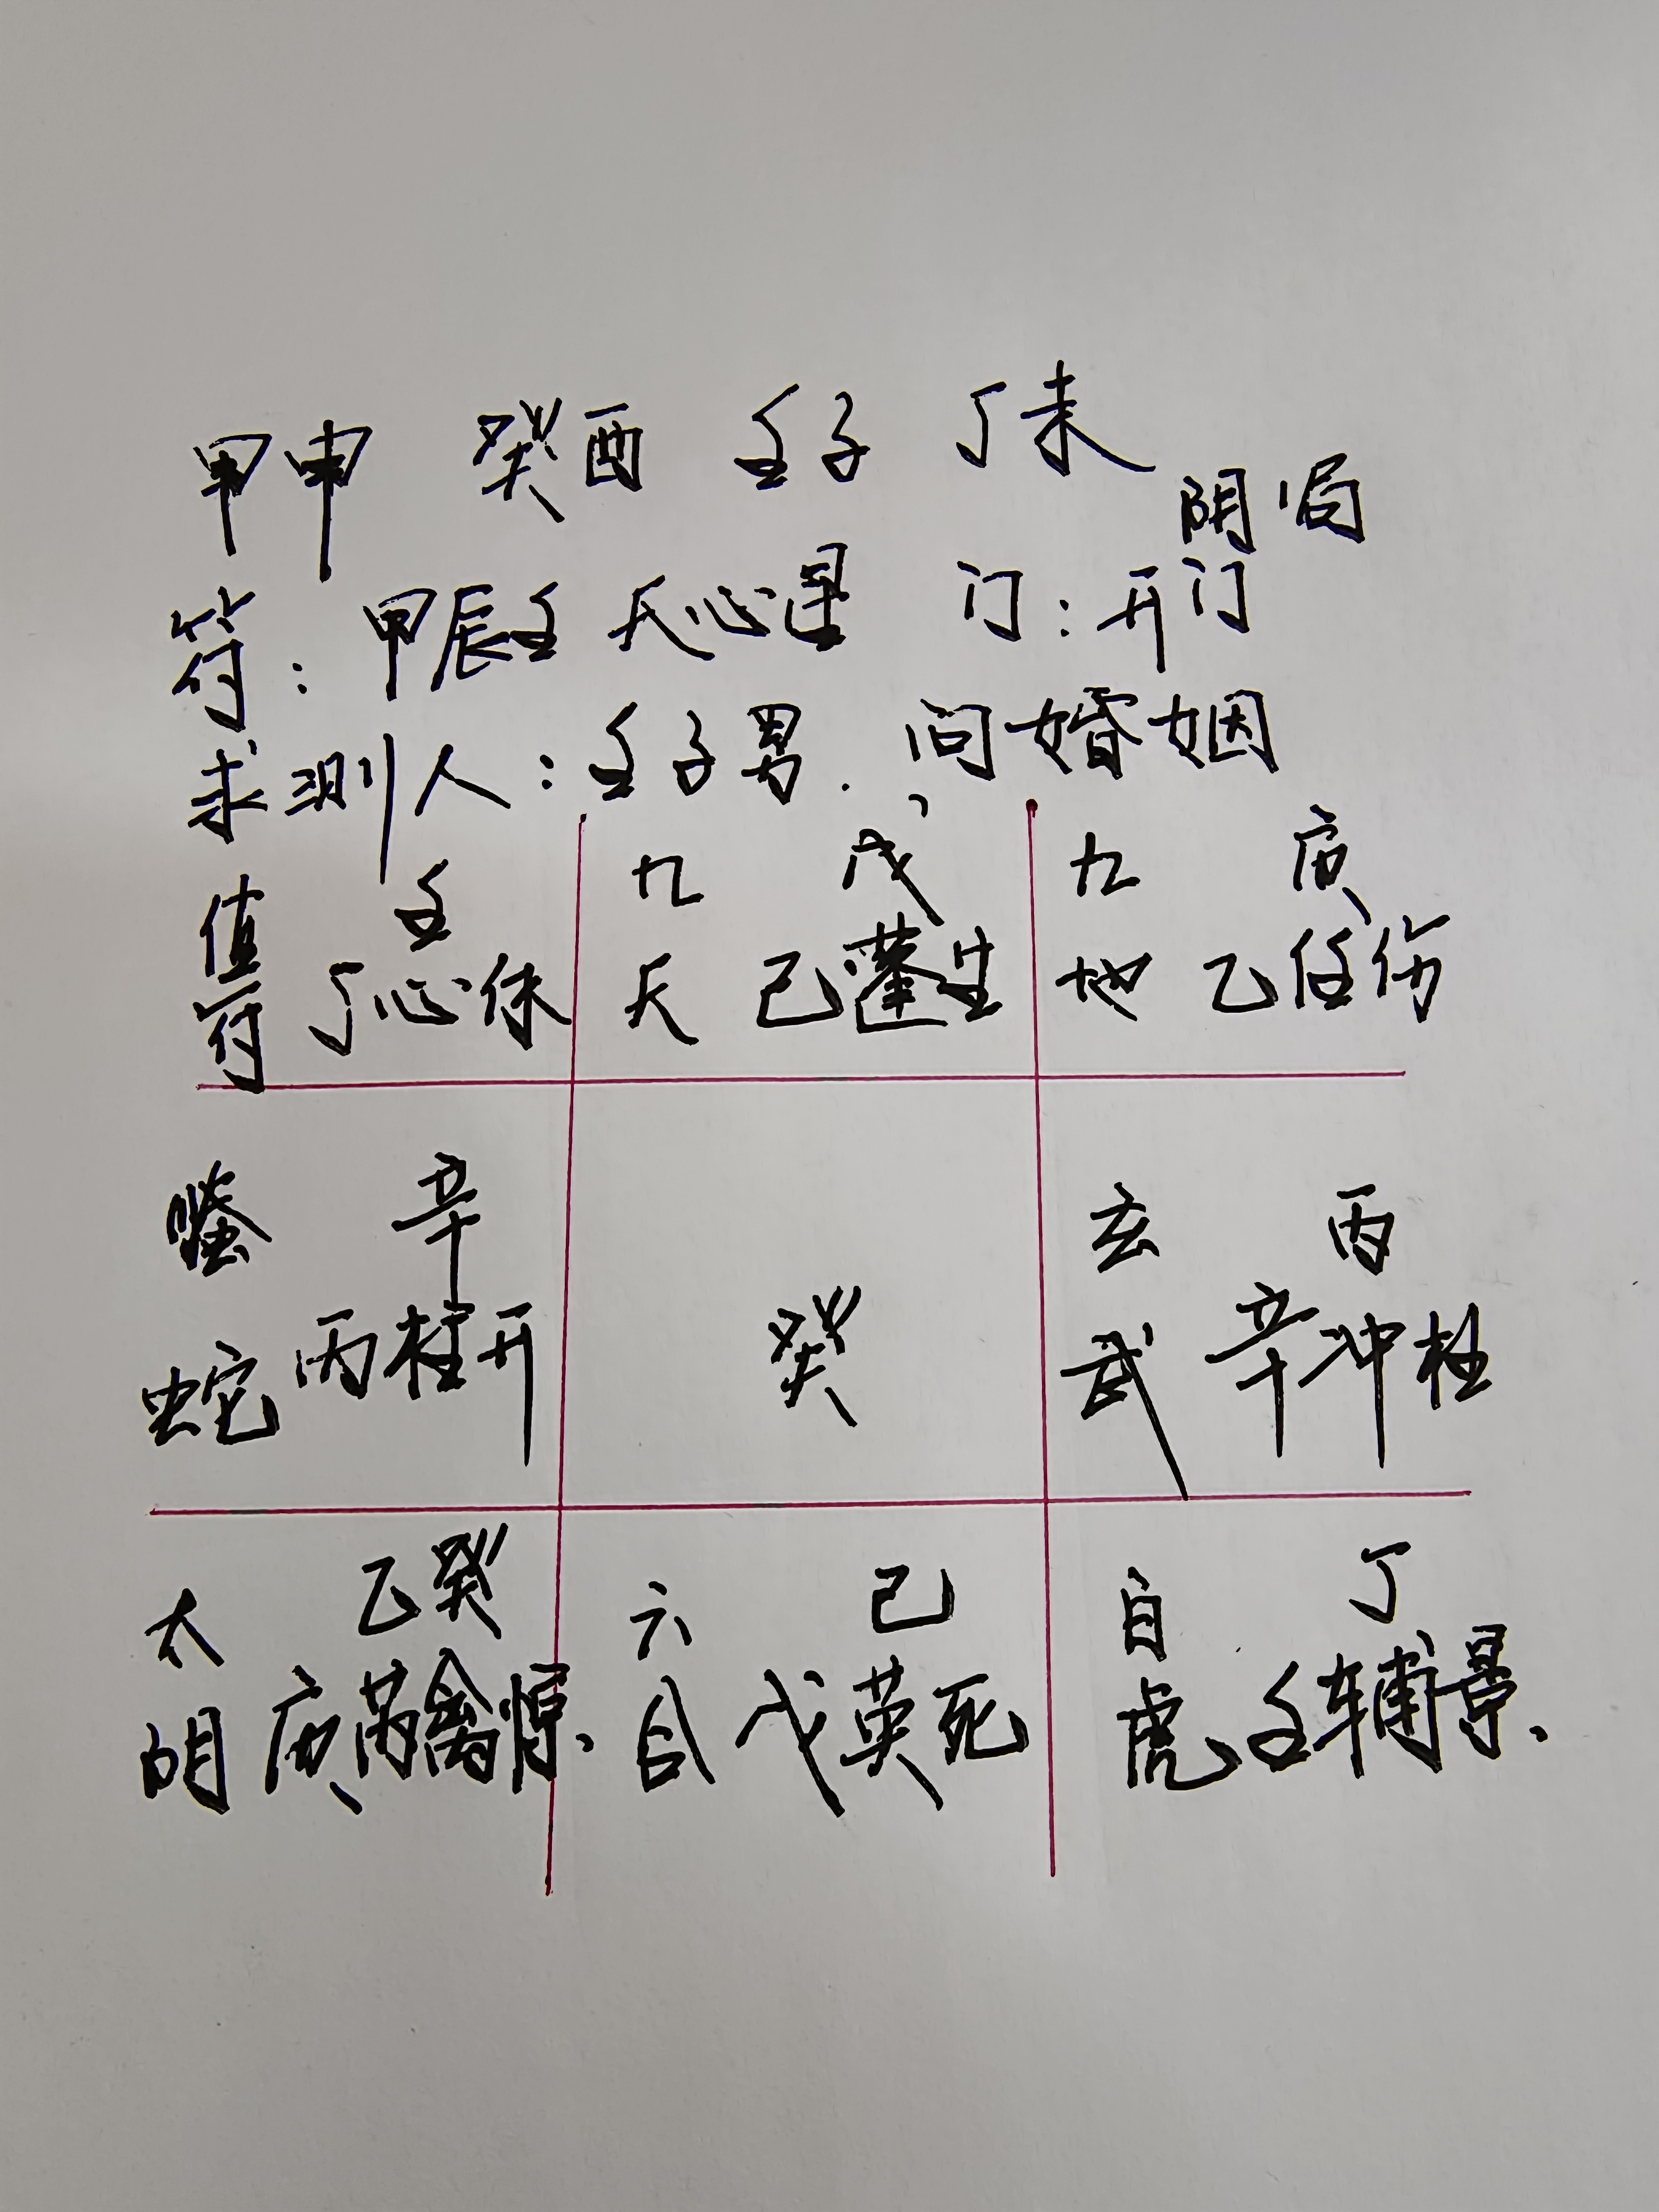 甲申 癸酉 壬子 丁未
阴1局
符：甲辰壬 天心星 门：开门
求测人：壬子男. 问婚姻
值 壬 九 戊 九 庚
符 丁心休 天 己蓬生 地 乙任伤
螣 辛 玄 丙
蛇 丙柱开 癸 武 辛冲杜
太 乙癸 六 己 白 丁
阴 庚芮禽惊、 合 戊英死 虎 壬辅景、